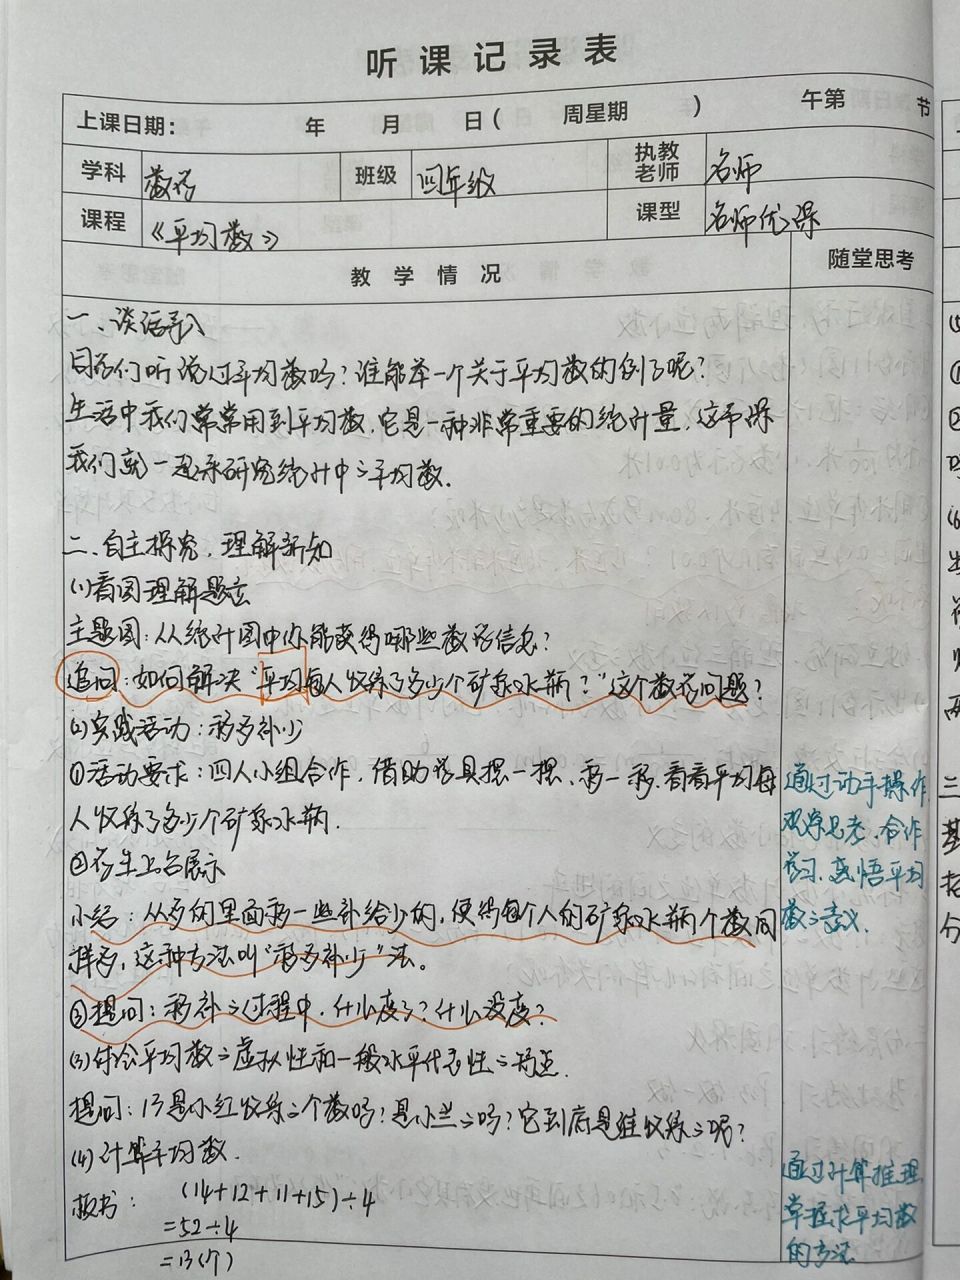 听课记录表
上课日期: 年 月 日( 周星期 ) 午第 节
学科 数学 班级 四年级 执教老师 名师
课程 《平均数》 课型 名师优课
教学情况 随堂思考
一、谈话导入
同学们听说过平均数吗?谁能举一个关于平均数的例子呢?
生活中我们常常用到平均数,它是一种非常重要的统计量,这节课
我们就一起来研究统计中之平均数.
二、自主探究,理解新知
(1)看图理解题意
主题图:从统计图中你能获得哪些数学信息?
追问:如何解决"平均每人收集了多少个矿泉水瓶?"这个数学问题?
(2)实践活动:移多补少
①活动要求:四人小组合作,借助学具摆一摆、移一移,看看平均每
人收集了多少个矿泉水瓶.
②学生上台展示
小结:从多的里面移一些补给少的,使得每个人的矿泉水瓶个数同
样多,这种方法叫"移多补少"法。
③提问:移补之过程中,什么变了?什么没变?
(3)体会平均数之虚拟性和一般水平代表性之特点.
提问:13是小红收集之个数吗?是小兰之吗?它到底是谁收集之呢?
(4)计算平均数.
板书: (14+12+11+15)÷4
=52÷4
=13(个)
通过动手操作,
观察思考,合作
学习,感悟平均
数之意义.
通过计算推理
掌握求平均数
的方法
三
基
分